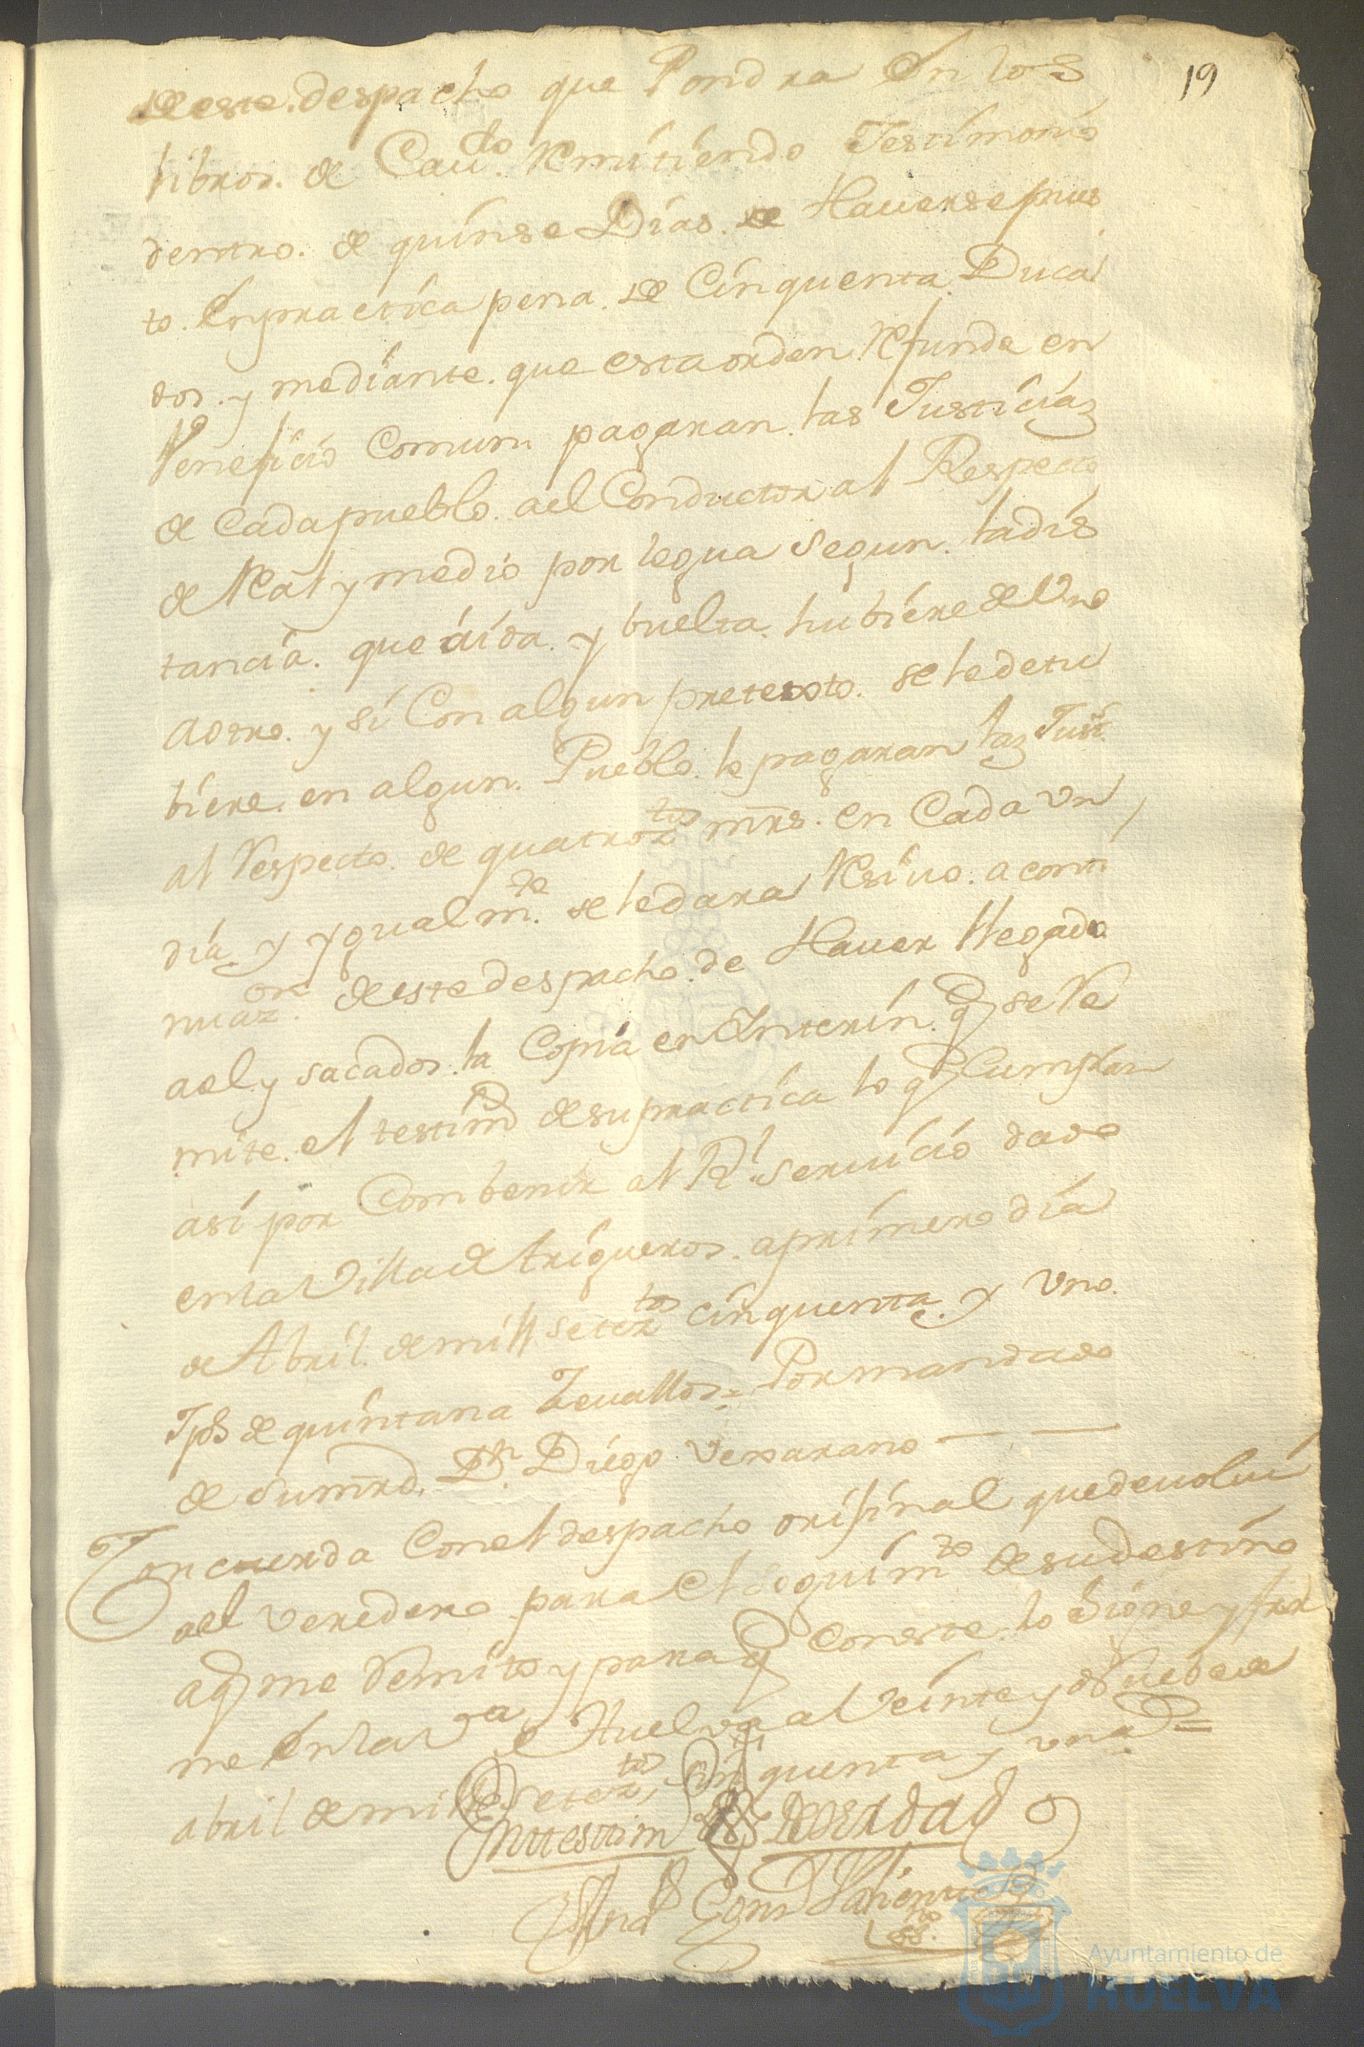 19
de este despacho que Pondra En los
libros. de Caudo. Remitiendo Testimonio
dentro. de quinse Dias. de Hauerse pues
to. En practica pena. de Cinquenta Duca
dos. y mediante. que esta orden Refunda en
Veneficio Comun pagaran. las Justicias
de Cada pueblo. a el Conductor al Respecto
de Real y medio por legua segun. la dis
tancia. que áida. y buelta. hubiere de Uno
a otro. y si Con algun pretexto. se le detu
biere. en algun. Pueblo. le pagaran las Justs.
al Respecto. de quatroztos mrs. en Cada un
dia y ygualmte. se le dara Resiuo. a conti
nuazon. de este despacho. de Hauer llegado
a el. y sacados. la Copia en Interin. q se Re
mite. el testimo de su practica lo q Cumplan
asi por Combenir al Rl. seruicio dado
en la Villa de trigueros. a primero dia
de Abril. de mill seteztos cinquenta. y Uno.
Tps de quintana Zeuallos = Por mandado
de su mrd. Dn. Diego Vexarano
Concuerda Con el despacho orijinal que deuolui
a el Veredero para el Seguimto. de su destino
a q me Remito y para q Conste. lo Signe y fir
me En la Va de Huelva a Veinte y Nuebe de
abril de mill seteztos, Cinquenta y uno =
En testim de Verdad
Ayuntamiento de
HUELVA